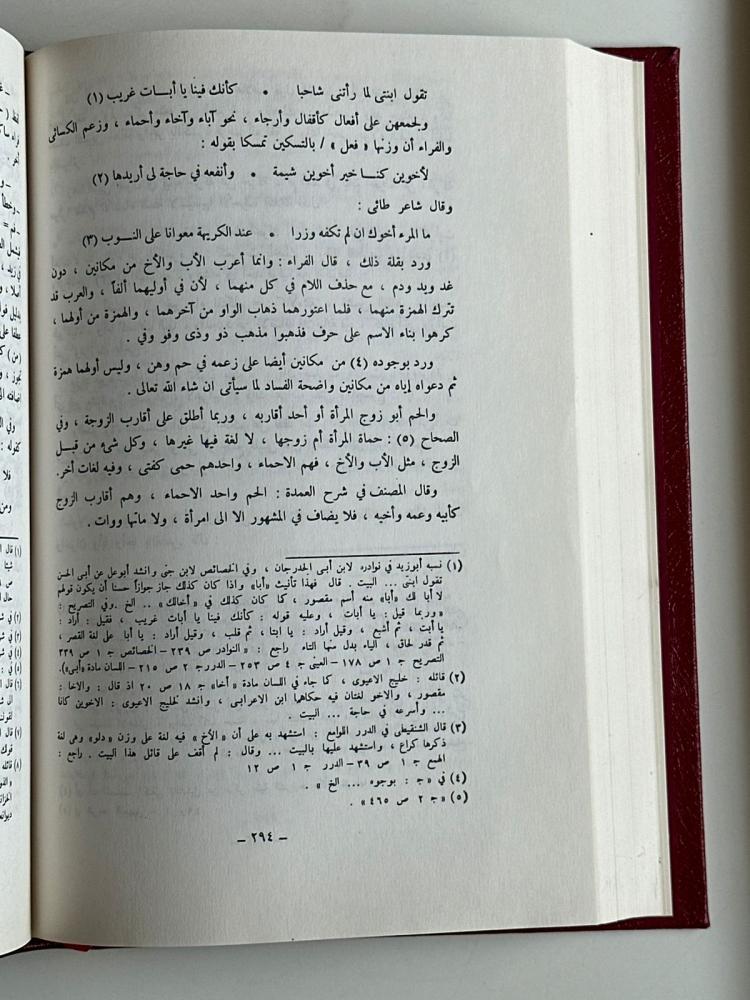 تقول ابنتى لما رأتنى شاحبا • كأنك فينا يا أبـــات غريب (١)
ولجمعهن على أفعال كأقفال وأرجاء ، نحو آباء وآخاء وأحماء ، وزعم الكسائى
والفراء أن وزنها « فعل » / بالتسكين تمسكا بقوله :
لأخوين كنــا خير أخوين شيمة • وأنفعه في حاجة لى أريدها (٢)
وقال شاعر طائى :
ما المرء أخوك ان لم تكفه وزرا • عند الكريهة معوانا على النـــوب (٣)
ورد بقلة ذلك ، قال الفراء : وانما أعرب الأب والأخ من مكانين ، دون
غد ويد ودم ، مع حذف اللام في كل منهما ، لأن في أوليهما ألفاً ، والعرب قد
تترك الهمزة منهما ، فلما اعتورهما ذهاب الواو من آخرهما ، والهمزة من أولهما ،
كرهوا بناء الاسم على حرف فذهبوا مذهب ذو وذى وفو وفي .
ورد بوجوده (٤) من مكانين أيضا على زعمه في حم وهن ، وليس أولهما همزة
ثم دعواه إياه من مكانين واضحة الفساد لما سيأتى ان شاء الله تعالى .
والحم أبو زوج المرأة أو أحد أقاربه ، وربما أطلق على أقارب الزوجة ، وفي
الصحاح (٥) : حماة المرأة أم زوجها ، لا لغة فيها غيرها ، وكل شىء من قبــل
الزوج ، مثل الأب والأخ ، فهم الاحماء ، واحدهم حمى كفتى ، وفيه لغات أخر.
وقال المصنف في شرح العمدة : الحم واحد الاحماء ، وهم أقارب الزوج
كأبيه وعمه وأخيه ، فلا يضاف في المشهور الا الى امرأة ، ولا ماتها ووات .
(١) نسبه أبوزيد في نوادره لابن أبى الحدرجان ، وفي الخصائص لابن جنى وانشد أبوعل عن أبى الحسن
تقول ابنتى ... البيت . قال فهذا تأنيث «أبا» واذا كان كذلك جاز جوازاً حسنا أن يكون قولهم
لا أبا لك «أبا» منه أسم مقصور ، كما كان كذلك في « أخالك » .. الخ .وفي التصريح :
« وربما قيل : يا أبات ، وعليه قوله : كأنك فينا يا أبات غريب ، فقيل : أراد :
يا أبت ، ثم أشبع ، وقيل أراد : يا ابتا ، ثم قلب ، وقيل أراد : يا أبا على لغة القصر ،
ثم قدر لحاق ، الياء بدل منها التاء راجع : « النوادر ص ٢٣٩ – الخصائص ج ١ ص ٣٣٩
التصريح ج ١ ص ١٧٨ – العينى ج ٤ ص ٢٥٣ – الدررج ٢ ص ٢١٥ – اللسان مادة «أبى»).
(٢) قائله : خليج الاعيوى ، كما جاء في اللسان مادة « أخا» ج ١٨ ص ٢٠ اذ قال : والاخا :
مقصور ، والاخو لغتان فيه حكاهما ابن الاعرابى ، وانشد لخليج الاعيوى : الاخوين كانا
... وأسرعه في حاجة ... البيت .
(٣) قال الشنقيطى في الدرر اللوامع : استشهد به على أن « الأخ » فيه لغة على وزن « دلو» وهى لغة
ذكرها كراع ، واستشهد عليها بالبيت ... وقال : لم أقف على قائل هذا البيت . راجع :
الهمع ج ١ ص ٣٩ – الدرر ج ١ ص ١٢
(٤) في « ج : بوجوه ... الخ » .
(٥) « ج ٢ ص ٤٦٥» .
– ٢٩٤ –